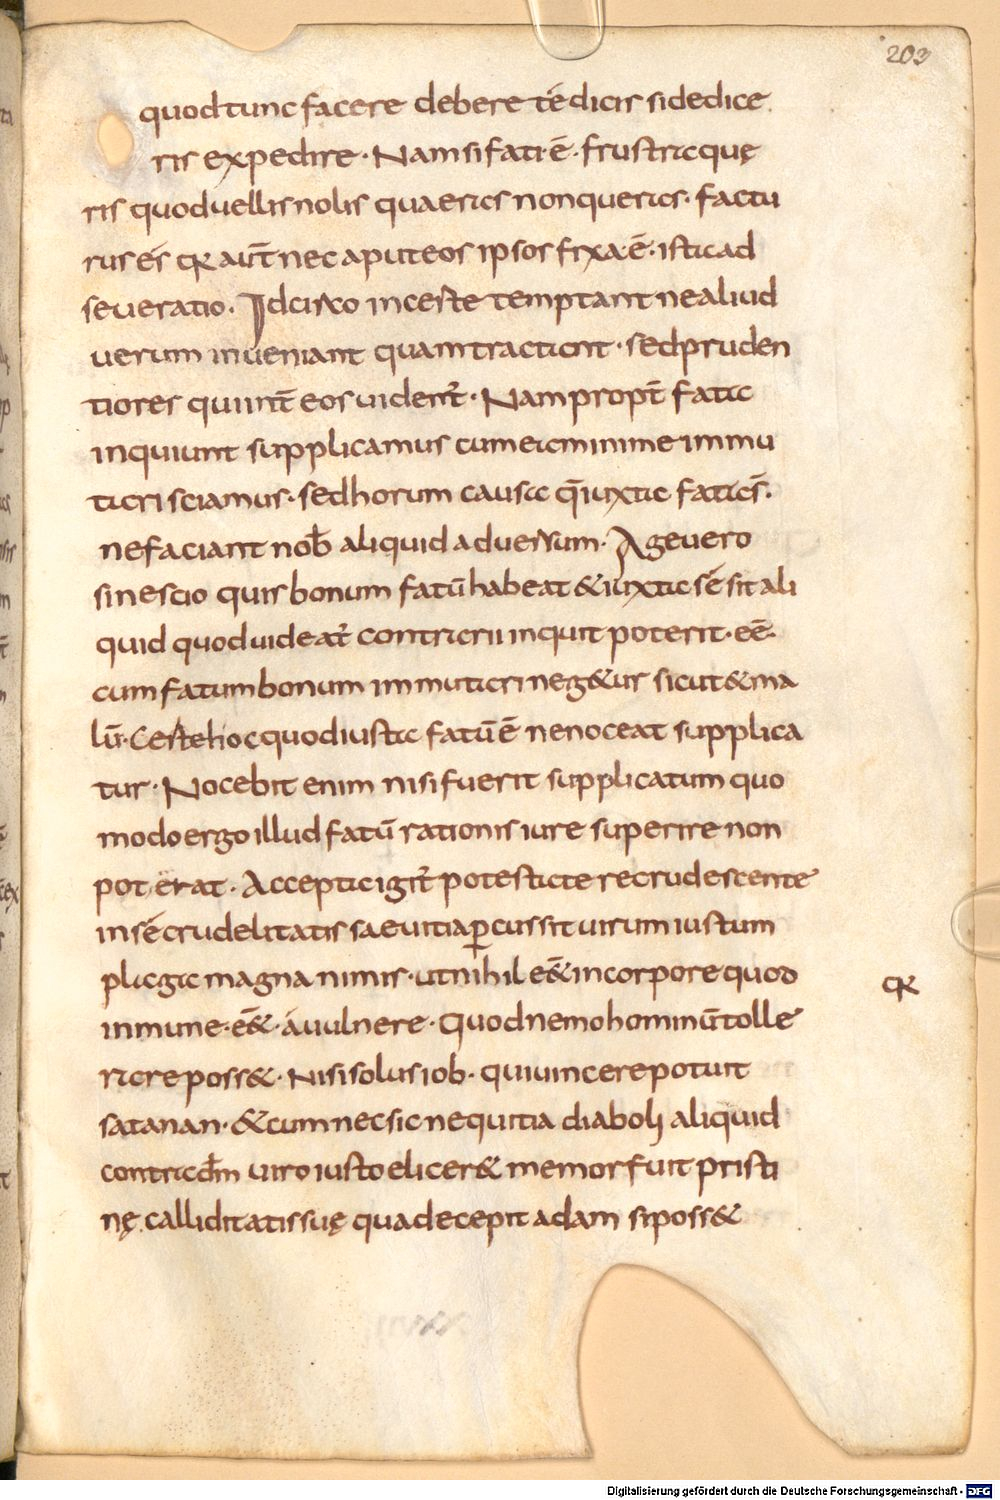 203
quod tunc facere debere té dicis si dedice
ris expedire · Nam si fati · ē · frustra quę
ris quod uellis nolis quaeras non queras · factu
rus és qR aut̄ nec aput eos ipsos fixa · ē · ista ad
seueratio · Idcirco incaste temptant ne aliud
uerum inueniant quam tractant · sed pruden
tiores qui int̄ eos uident̄ · Nam propt̄ fata
inquiunt supplicamus cum ea minime immu
tari sciamus · sed horum causa q̄ iuxta fata s̄ ·
ne faciant nob̄ aliquid aduersum · Age uero
si nescio quis bonum fatū habeat & iuxta sé sit ali
quid quod uideat̄ contrarii inquit poterit · eē ·
cum fatum bonum immutari neg&ur sicut & ma
lū · Casta hoc quod iusta fatū ē ne noceat supplica
tur · Nocebit enim nisi fuerit supplicatum quo
modo ergo illud fatū rationis iure superire non
poterat · Accepta igit̄ potestate recrudescente
in sé crudelitatis saeuitia ꝑcussit uirum iustum
plaga magna nimis · ut nihil eē& in corpore quod
inmune · eē& · á uulnere · Quod nemo hominū tolle
rare poss& · Nisi solus iob · qui uincere potuit
qR
satanan · & cum nec sic nequitia diaboli aliquid
contra dm̄ uiro iusto elicer& memor fuit pristi
nę calliditatis suę qua decepit adam si poss&
Digitalisierung gefördert durch die Deutsche Forschungsgemeinschaft · DFG